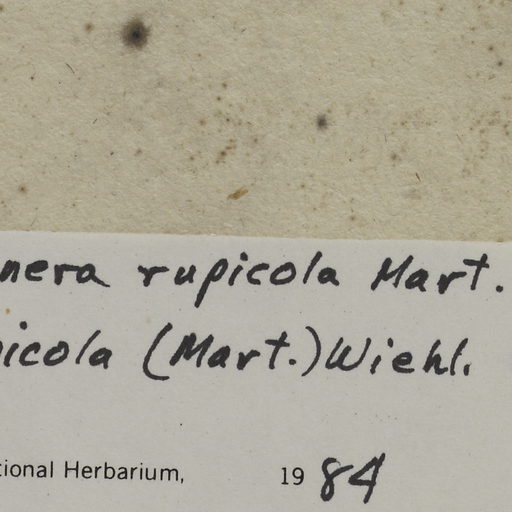 nera rupicola Mart.
picola (Mart.) Wiehl.
tional Herbarium, 19 84